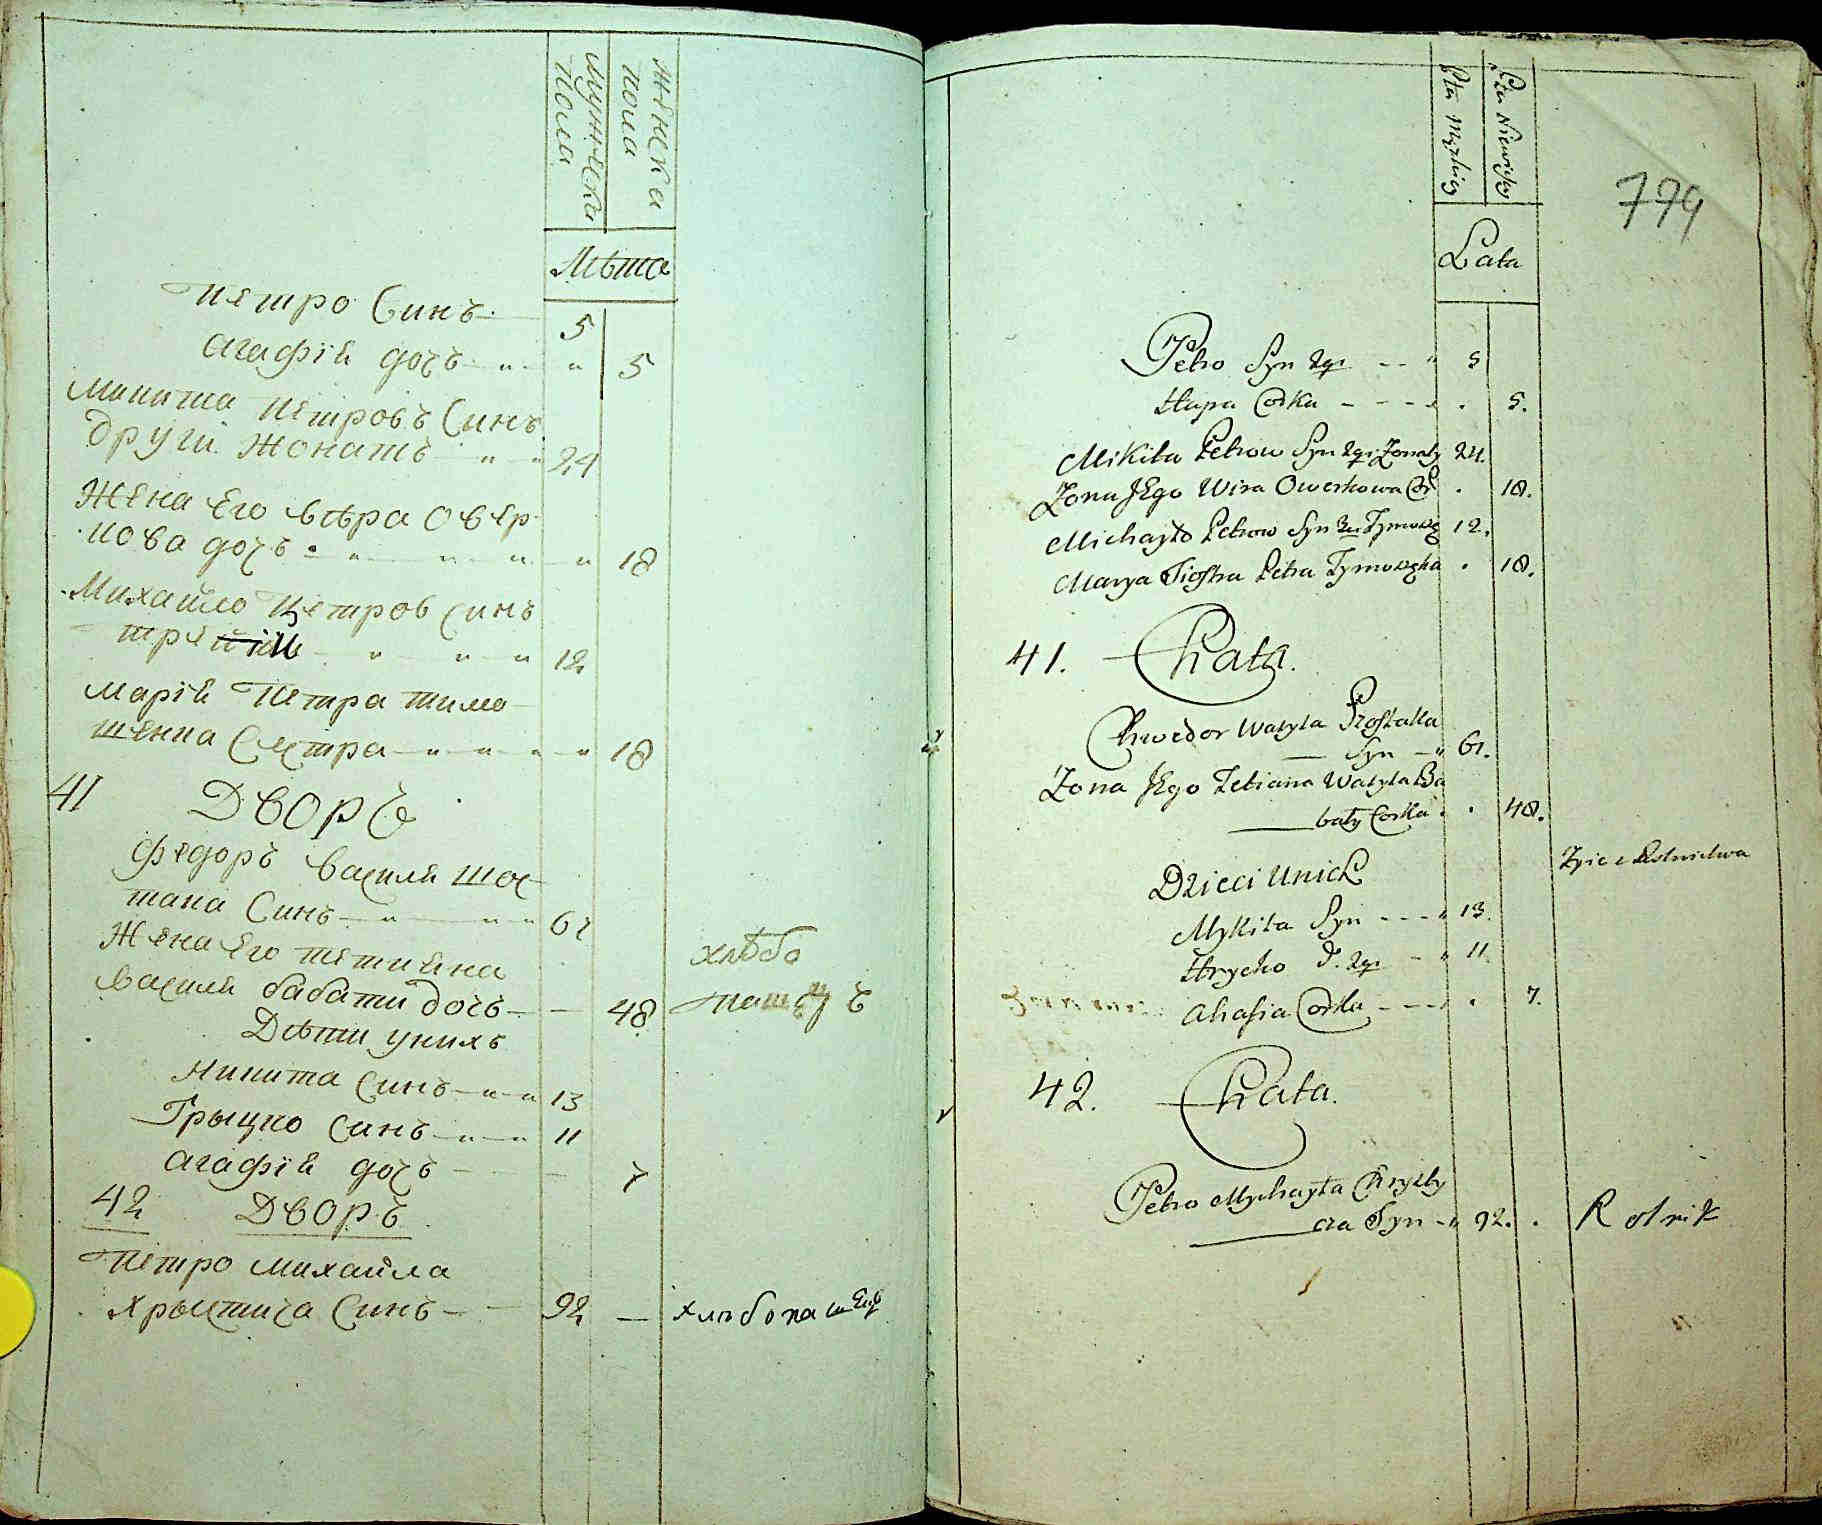 мужеска
пола
женска
пола
Лѣта
Петро Синъ 5
Агафія дочъ " 5
Микита Петровъ Синъ
други Жонатъ 24
Жена Его вѣра Овер-
кова дочъ 18
Михайло Петров Синъ
12
Марія Петра тимо-
шенка Сестра 18
41 Дворъ
Федоръ Василя шос-
така Синъ 61
Жена Его тетияна
Василя бабати дочъ 48
хлѣбо
Дѣти уних
Никита Синъ 13
Грыцко Синъ 11
Агафія дочъ 7
42 Дворъ
Петро михайла
Хрыстича Синъ 92 —
Płci Męzkiej
Płci Niewieściej
799
Lata
Petro Syn 2gi 5
Hapa Corka 5.
Mikita Petrow Syn 2gi Zonaty 24.
Zona JEgo Wira Owerkowa Cor 18.
Michayło Petrow Syn 3ci 12.
Marya Siostra Petra Tymoszenka 18.
41. Chata.
Chwedor Wasyla Szostaka
Syn 61.
Zona JEgo Tetiana Wasyla Ba
baty Corka 48.
Zyie z Rolnictwa
Dzieci Unich
Mykita Syn 13.
Hrycko S. 2gi 11.
Ahafia Corka 7.
42. Chata.
Petro Mychayła Chrysty
cza Syn 92. Rolnik